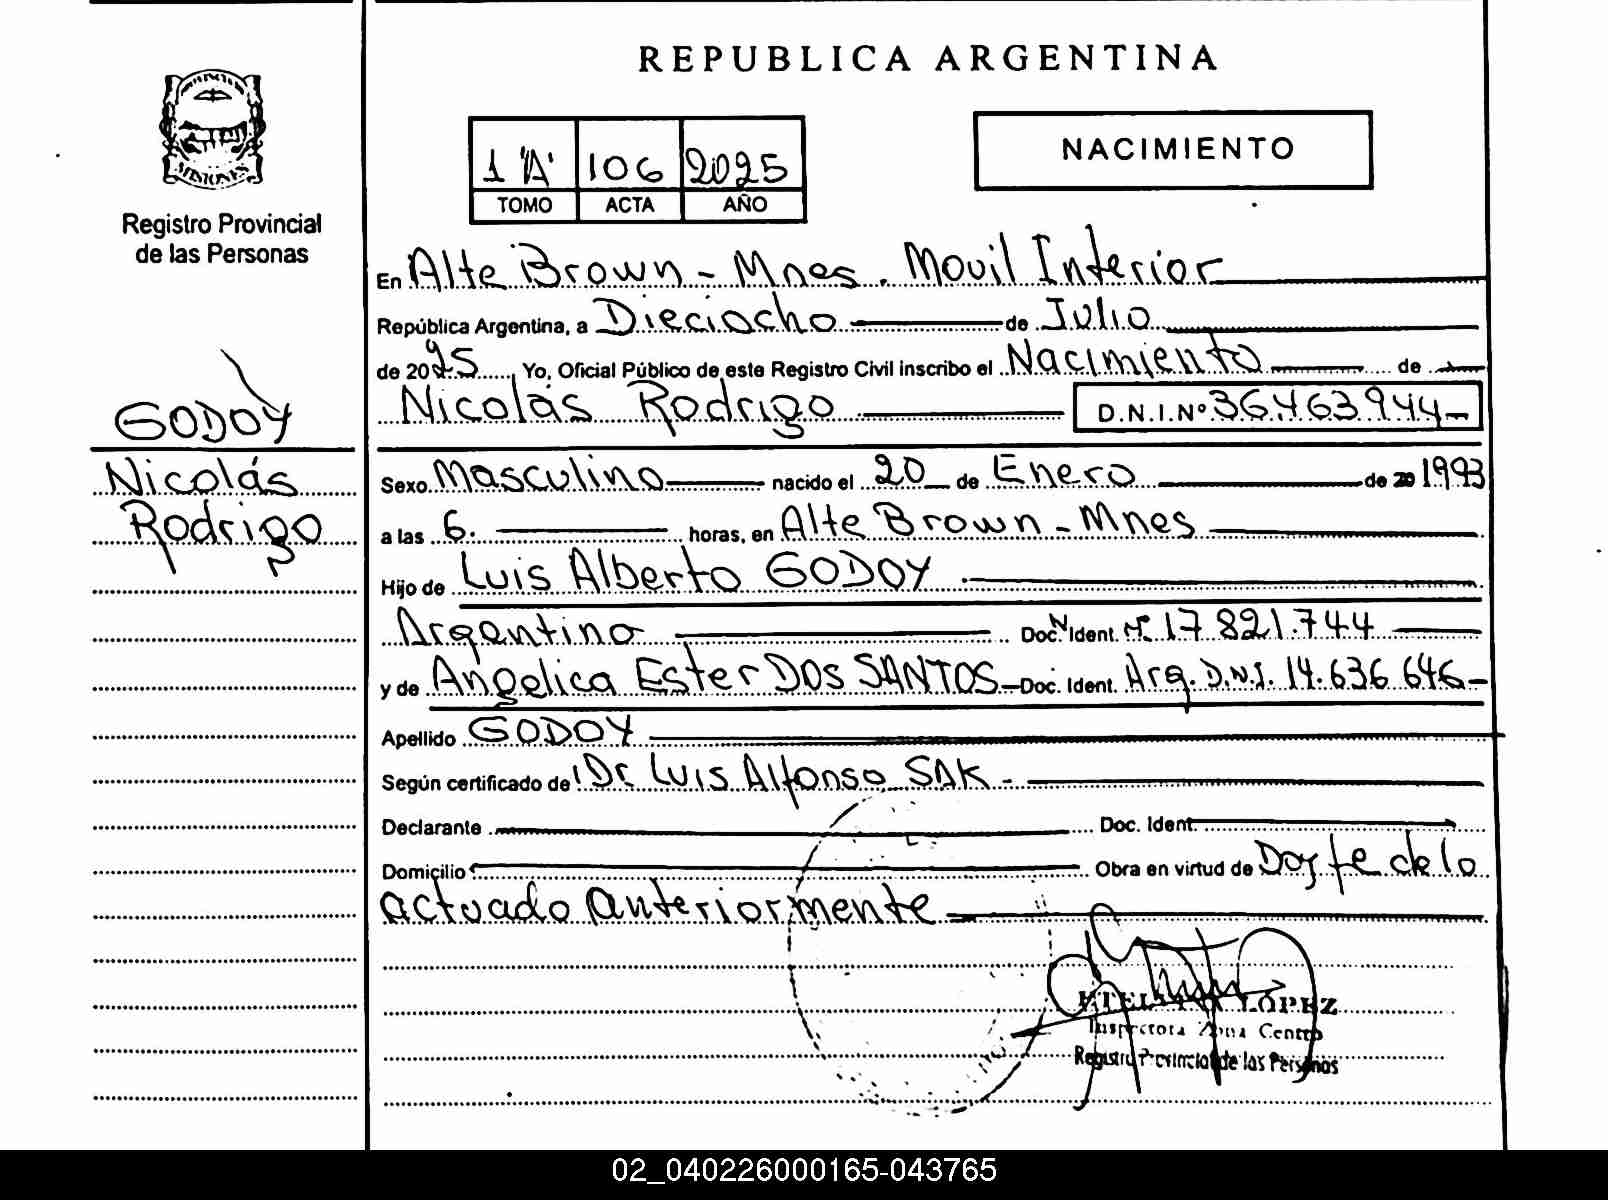 REPUBLICA ARGENTINA
NACIMIENTO
1 "A" 106 2025
TOMO ACTA AÑO
MISIONES
Registro Provincial
de las Personas
GODOY
Nicolás
Rodrigo
En Alte Brown - Mnes. Movil Interior
República Argentina, a Dieciocho de Julio
de 2025 Yo, Oficial Público de este Registro Civil inscribo el Nacimiento de
Nicolás Rodrigo D.N.I.Nº 36.463944-
Sexo Masculino nacido el 20 de Enero de 20 1993
a las 6. horas, en Alte Brown - Mnes
Hijo de Luis Alberto GODOY
Argentino Doc. Ident. Nº 17 821.744
y de Angelica Ester DOS SANTOS - Doc. Ident. Arg. D.N.I. 14.636 646-
Apellido GODOY
Según certificado de Dr Luis Alfonso SAK -
Declarante Doc. Ident.
Domicilio Obra en virtud de Doy fe de lo
actuado anteriormente
LÓPEZ
Inspectora Zona Centro
Registro Provincial de las Personas
02_040226000165-043765